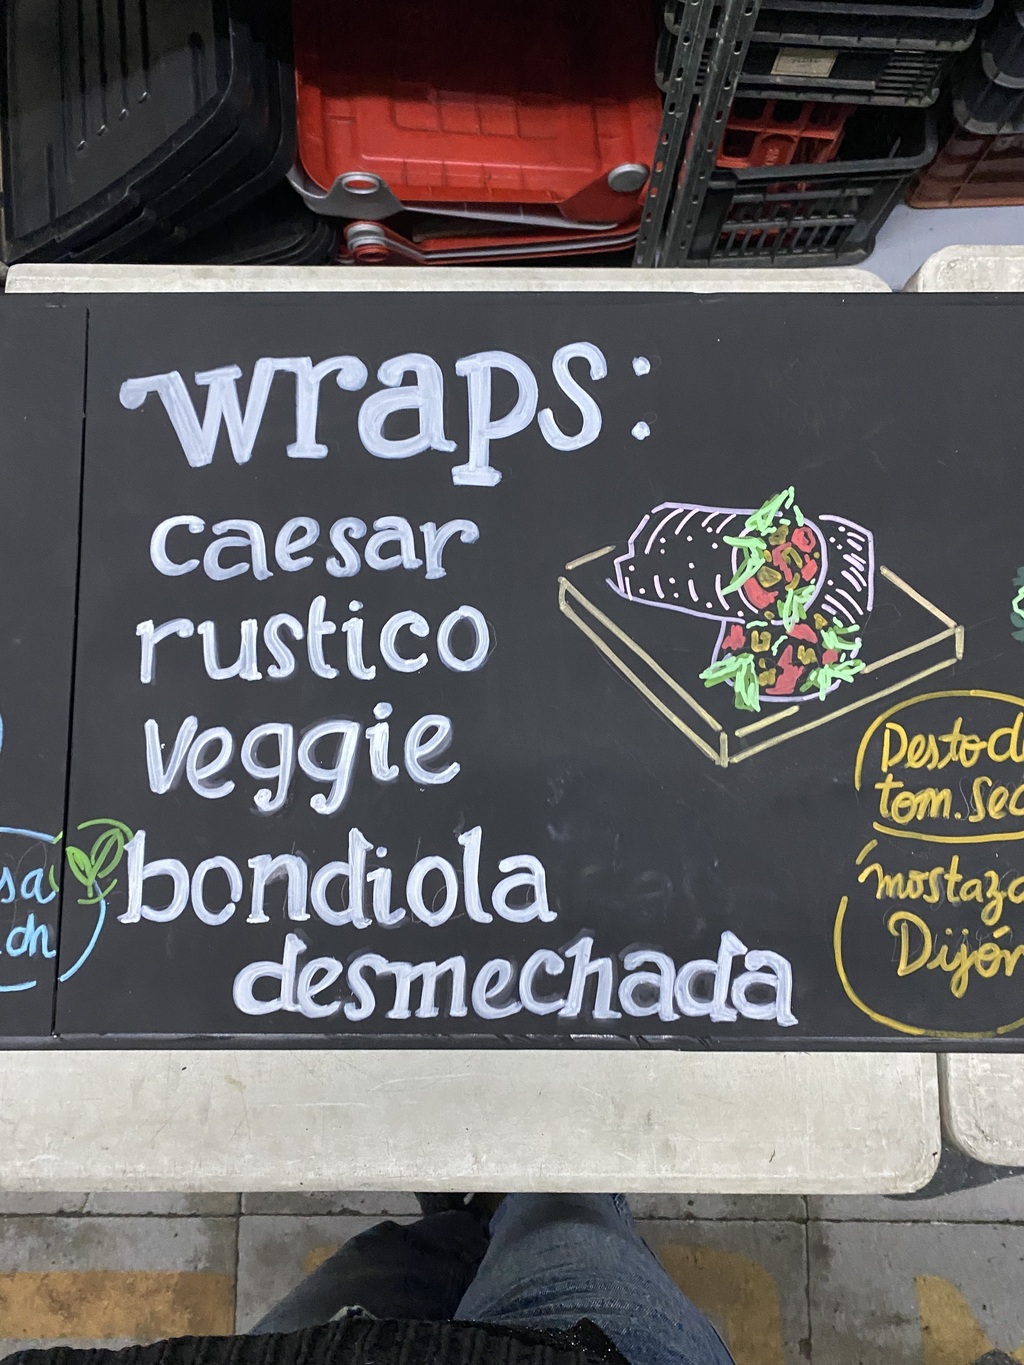 wraps:
caesar
rustico
veggie
bondiola
desmechada
sa
dh
tom.
mostaza
Dijón